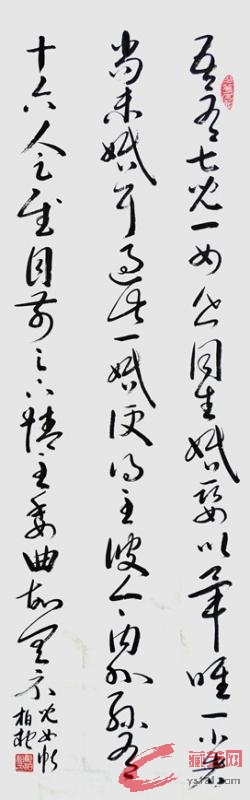 吾有七兒一女皆同生婚娶以畢唯一小者
尚未婚耳過此一婚便得至彼今內外孫有
十六人足慰目前足下情至委曲故具示
兒女帖